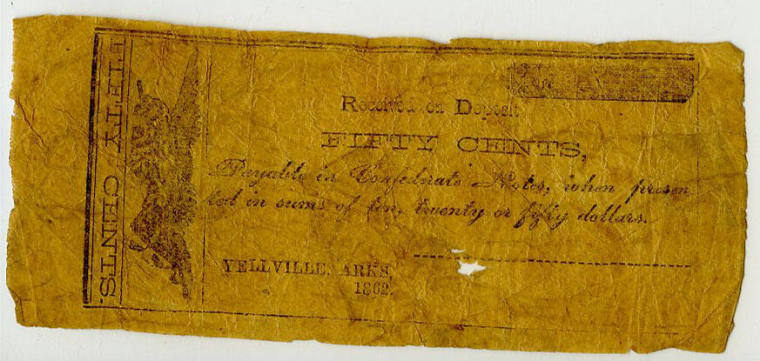 FIFTY CENTS.
No.
Received on Deposit
FIFTY CENTS,
Payable in Confederate Notes, when presen
ted in sums of ten, twenty or fifty dollars.
YELLVILLE, ARKS,
1862.